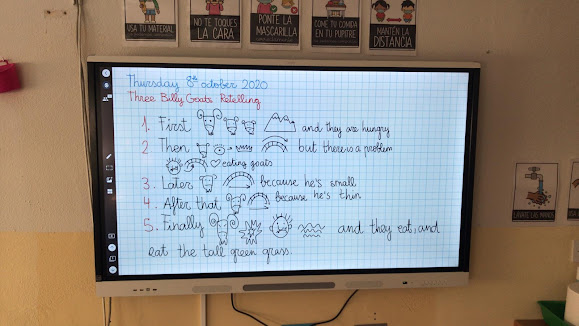 USA TU MATERIAL
NO TE TOQUES
LA CARA
PONTE LA
MASCARILLA
COME TU COMIDA
EN TU PUPITRE
MANTÉN LA
DISTANCIA
Thursday 8th october 2020
Three Billy Goats Retelling
1. First and they are hungry
2 Then but there is a problem
eating goats
3. Later because he's small
4. After that because he's thin
5. Finally and they eat, and
eat the tall green grass.
LÁVATE LAS MANOS